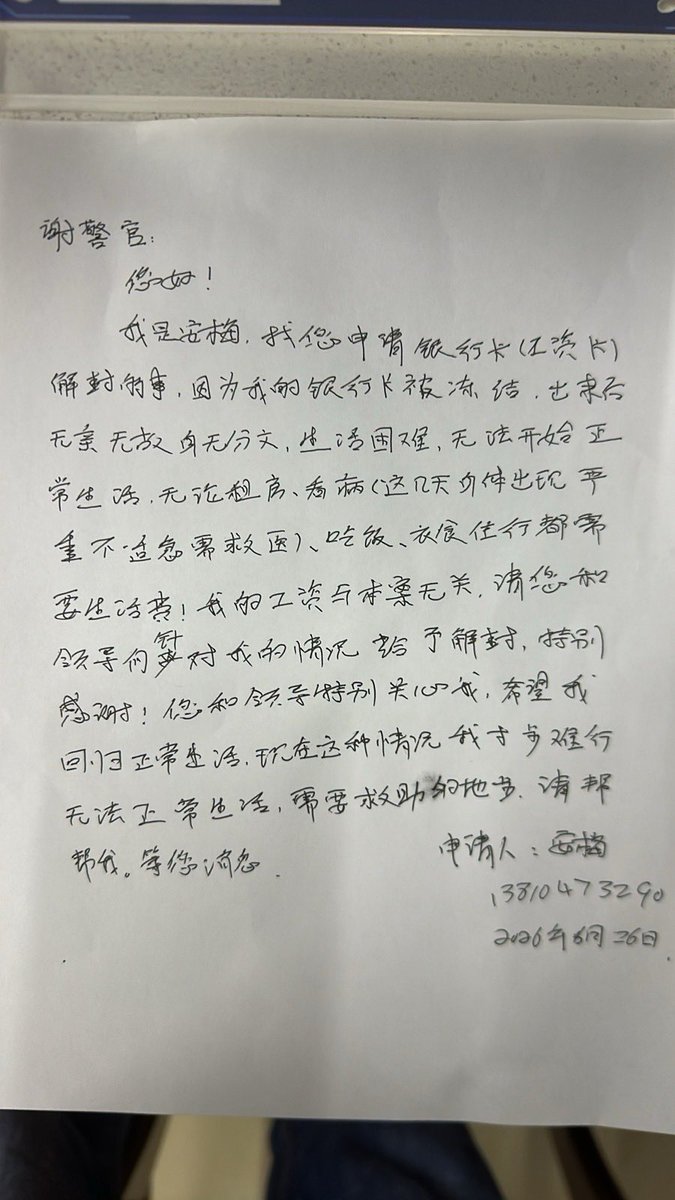 谢警官:
您好!
我是安梅,找您申请银行卡(工资卡)
解封的事,因为我的银行卡被冻结,出来后
无亲无故身无分文,生活困难,无法开始正
常生活,无论租房、看病(这几天身体出现严
重不适急需救医)、吃饭、衣食住行都需
要生活费!我的工资与本案无关,请您和
领导们针对我的情况给予解封,特别
感谢!您和领导特别关心我,希望我
回归正常生活,现在这种情况我寸步难行
无法正常生活,需要救助的地步,请帮
帮我。等您消息.
申请人:安梅
13810473290
2026年6月26日